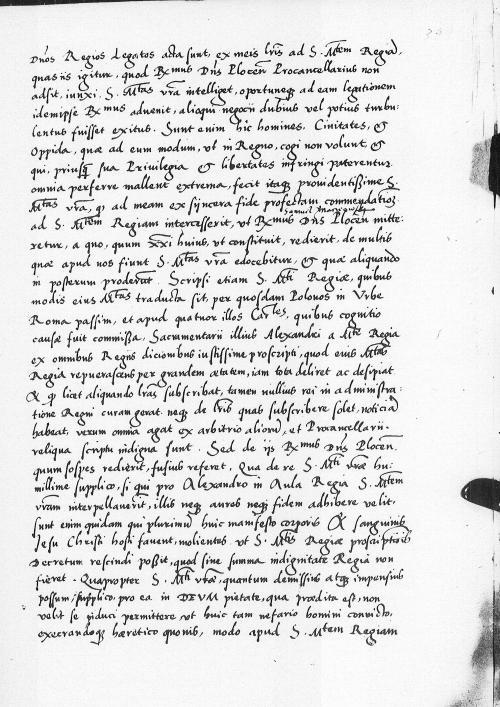 Dños Regios Legatos acta sunt, ex meis lris ad S. Mtem Regiã,
quas iis igitur, quod Rxmus Dñs Plocen̄ Procancellarius non
adsit, iunxi. S. Mtas vr̃a intelliget, oportuneq; ad eam legationem
idem ipse Rxmus advenit, alioqui negocii dubius vel potius turbu:
lentus fuisset exitus. Sunt enim hic homines, Civitates, &
Oppida, quæ ad eum modum, ut in Regno, cogi non volunt, &
qui, priusq̃ sua Privilegia & libertates infringi paterentur
omnia perferre mallent extrema, fecit itaq; prouidentissime S.
Mtas vr̃a, q ad meam ex syncera fide profectam commendatioẽ
ad S. Mtem Regiam intercesserit, ut Rxmus Dñs Plocen̄ mitte:
retur, a quo, quum xxi huius, ut constituit, redierit, de multis
quæ apud nos fiunt S. Mtas vr̃a edocebitur, & quæ aliquando
in posterum proderũt. Scripsi etiam S. Mti Regiæ, quibus
modis eius Mtas traducta sit, per quosdam Polonos in Vrbe
Roma passim, et apud quatuor illos Carles, quibus cognitio
causæ fuit commissa, Sacramentarii illius Alexandri a Mte Regia
ex omnibus Regiis dicionibus iustissime proscripti, quod eius Mtas
Regia repuerascens per grandem ætatem, iam tota deliret ac desipiat.
Et q licet aliquando lr̃as subscribat, tamen nullius rei in administra:
tione Regni curam gerat. neq; de lris quas subscribere solet, noticiã
habeat, verum omnia agat ex arbitrio alioru, et Procancellarii.
reliqua scriptu indigna sunt. Sed de iis Rxmus Dñs Plocen̄.
quum sospes redierit, fusius referet. Qua de re S. Mti vr̃æ hu:
millime supplico, si qui pro Alexandro in Aula Regia S. Mtem
vr̃am interpellauerint, illis neq; aures neq; fidem adhibere velit,
sunt enim quidam qui plurimũ huic manifesto corporis & sanguinis
Iesu Christi hosti fauent, molientes. ut S. Mtis Regiæ proscriptiõis
Decretum rescindi possit, quod sine summa indignitate Regia non
fieret. Quapropter S. Mti vr̃æ, quantum demissius atq; impensius
possum, supplico, pro ea in DEVM pietate, qua prædita est, non
velit se induci permittere, ut huic tam nefario homini conuicto,
execrandoq; hæretico quouis, modo apud S. Mtem Regiam